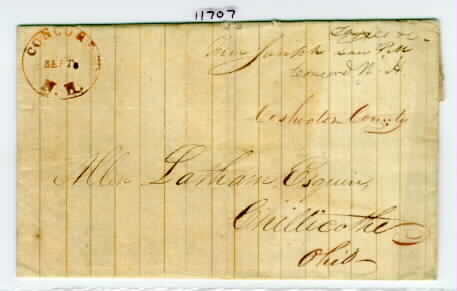 11707
CONCORD
SEP 7
N.H.
Free Joseph Low P.M
Concord N. H
Coshocton County
Allen Latham Esquire
Chillicothe
Ohio